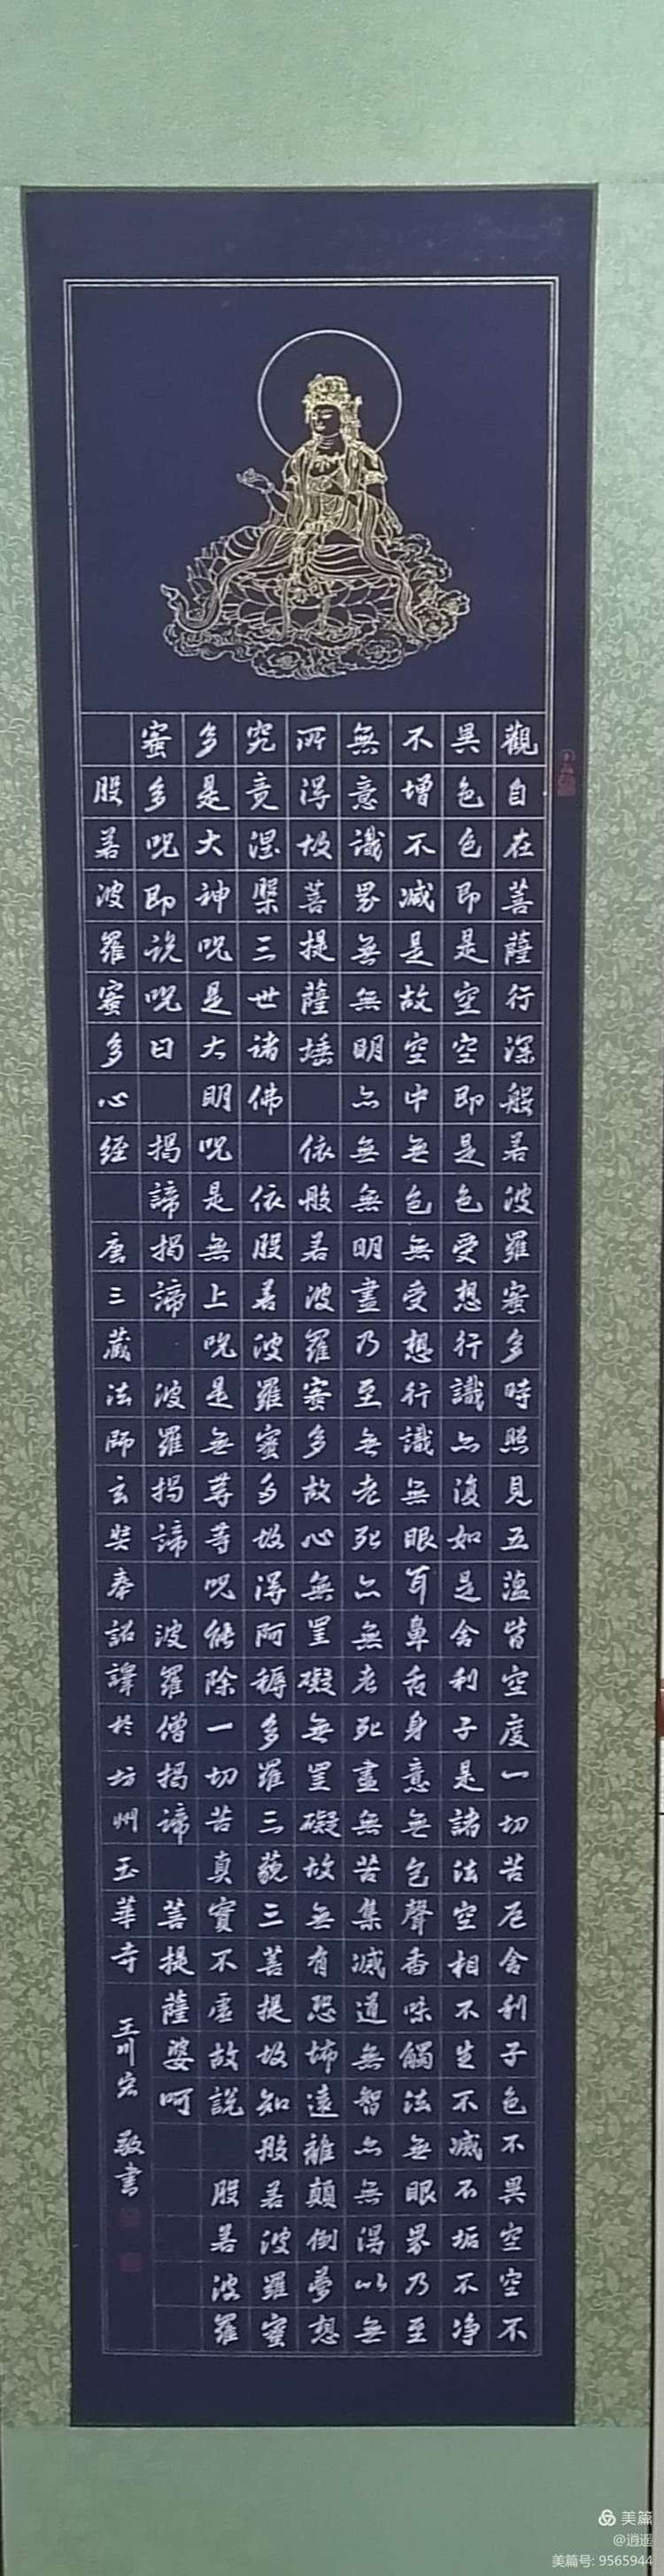 觀自在菩薩行深般若波羅蜜多時照見五蘊皆空度一切苦厄舍利子色不異空空不
異色色即是空空即是色受想行識亦復如是舍利子是諸法空相不生不滅不垢不净
不增不减是故空中無色無受想行識無眼耳鼻舌身意無色聲香味觸法無眼界乃至
無意識界無無明亦無無明盡乃至無老死亦無老死盡無苦集滅道無智亦無得以無
所得故菩提薩埵 依般若波羅蜜多故心無罣礙無罣礙故無有恐怖遠離顛倒夢想
究竟涅槃三世諸佛 依般若波羅蜜多故得阿耨多羅三藐三菩提故知般若波羅蜜
多是大神呪是大明呪是無上呪是無等等呪能除一切苦真實不虛故説 般若波羅
蜜多呪即説呪曰 揭諦揭諦 波羅揭諦 波羅僧揭諦 菩提薩婆呵
般若波羅蜜多心經 唐三藏法師玄奘奉詔譯於坊州玉華寺 王川宏 敬書
美篇
@逍遥
美篇号: 9565944